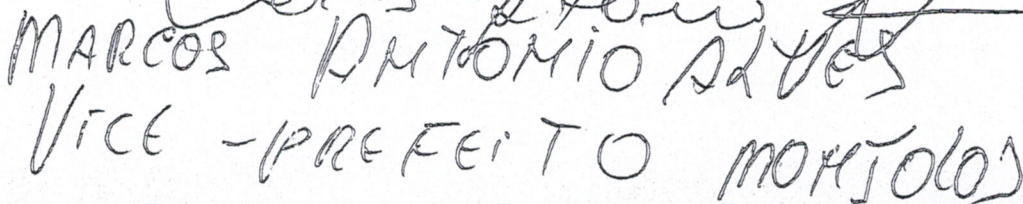 MARCOS ANTONIO ALVES
VICE - PREFEITO MONJOLOS